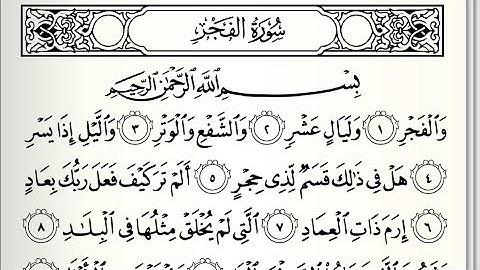 سُورَةُ الفَجْرِ
بِسْمِ ٱللَّهِ ٱلرَّحْمَٰنِ ٱلرَّحِيمِ
وَٱلْفَجْرِ ١ وَلَيَالٍ عَشْرٍ ٢ وَٱلشَّفْعِ وَٱلْوَتْرِ ٣ وَٱلَّيْلِ إِذَا يَسْرِ
٤ هَلْ فِي ذَٰلِكَ قَسَمٌ لِّذِي حِجْرٍ ٥ أَلَمْ تَرَ كَيْفَ فَعَلَ رَبُّكَ بِعَادٍ
٦ إِرَمَ ذَاتِ ٱلْعِمَادِ ٧ ٱلَّتِي لَمْ يُخْلَقْ مِثْلُهَا فِي ٱلْبِلَٰدِ ٨